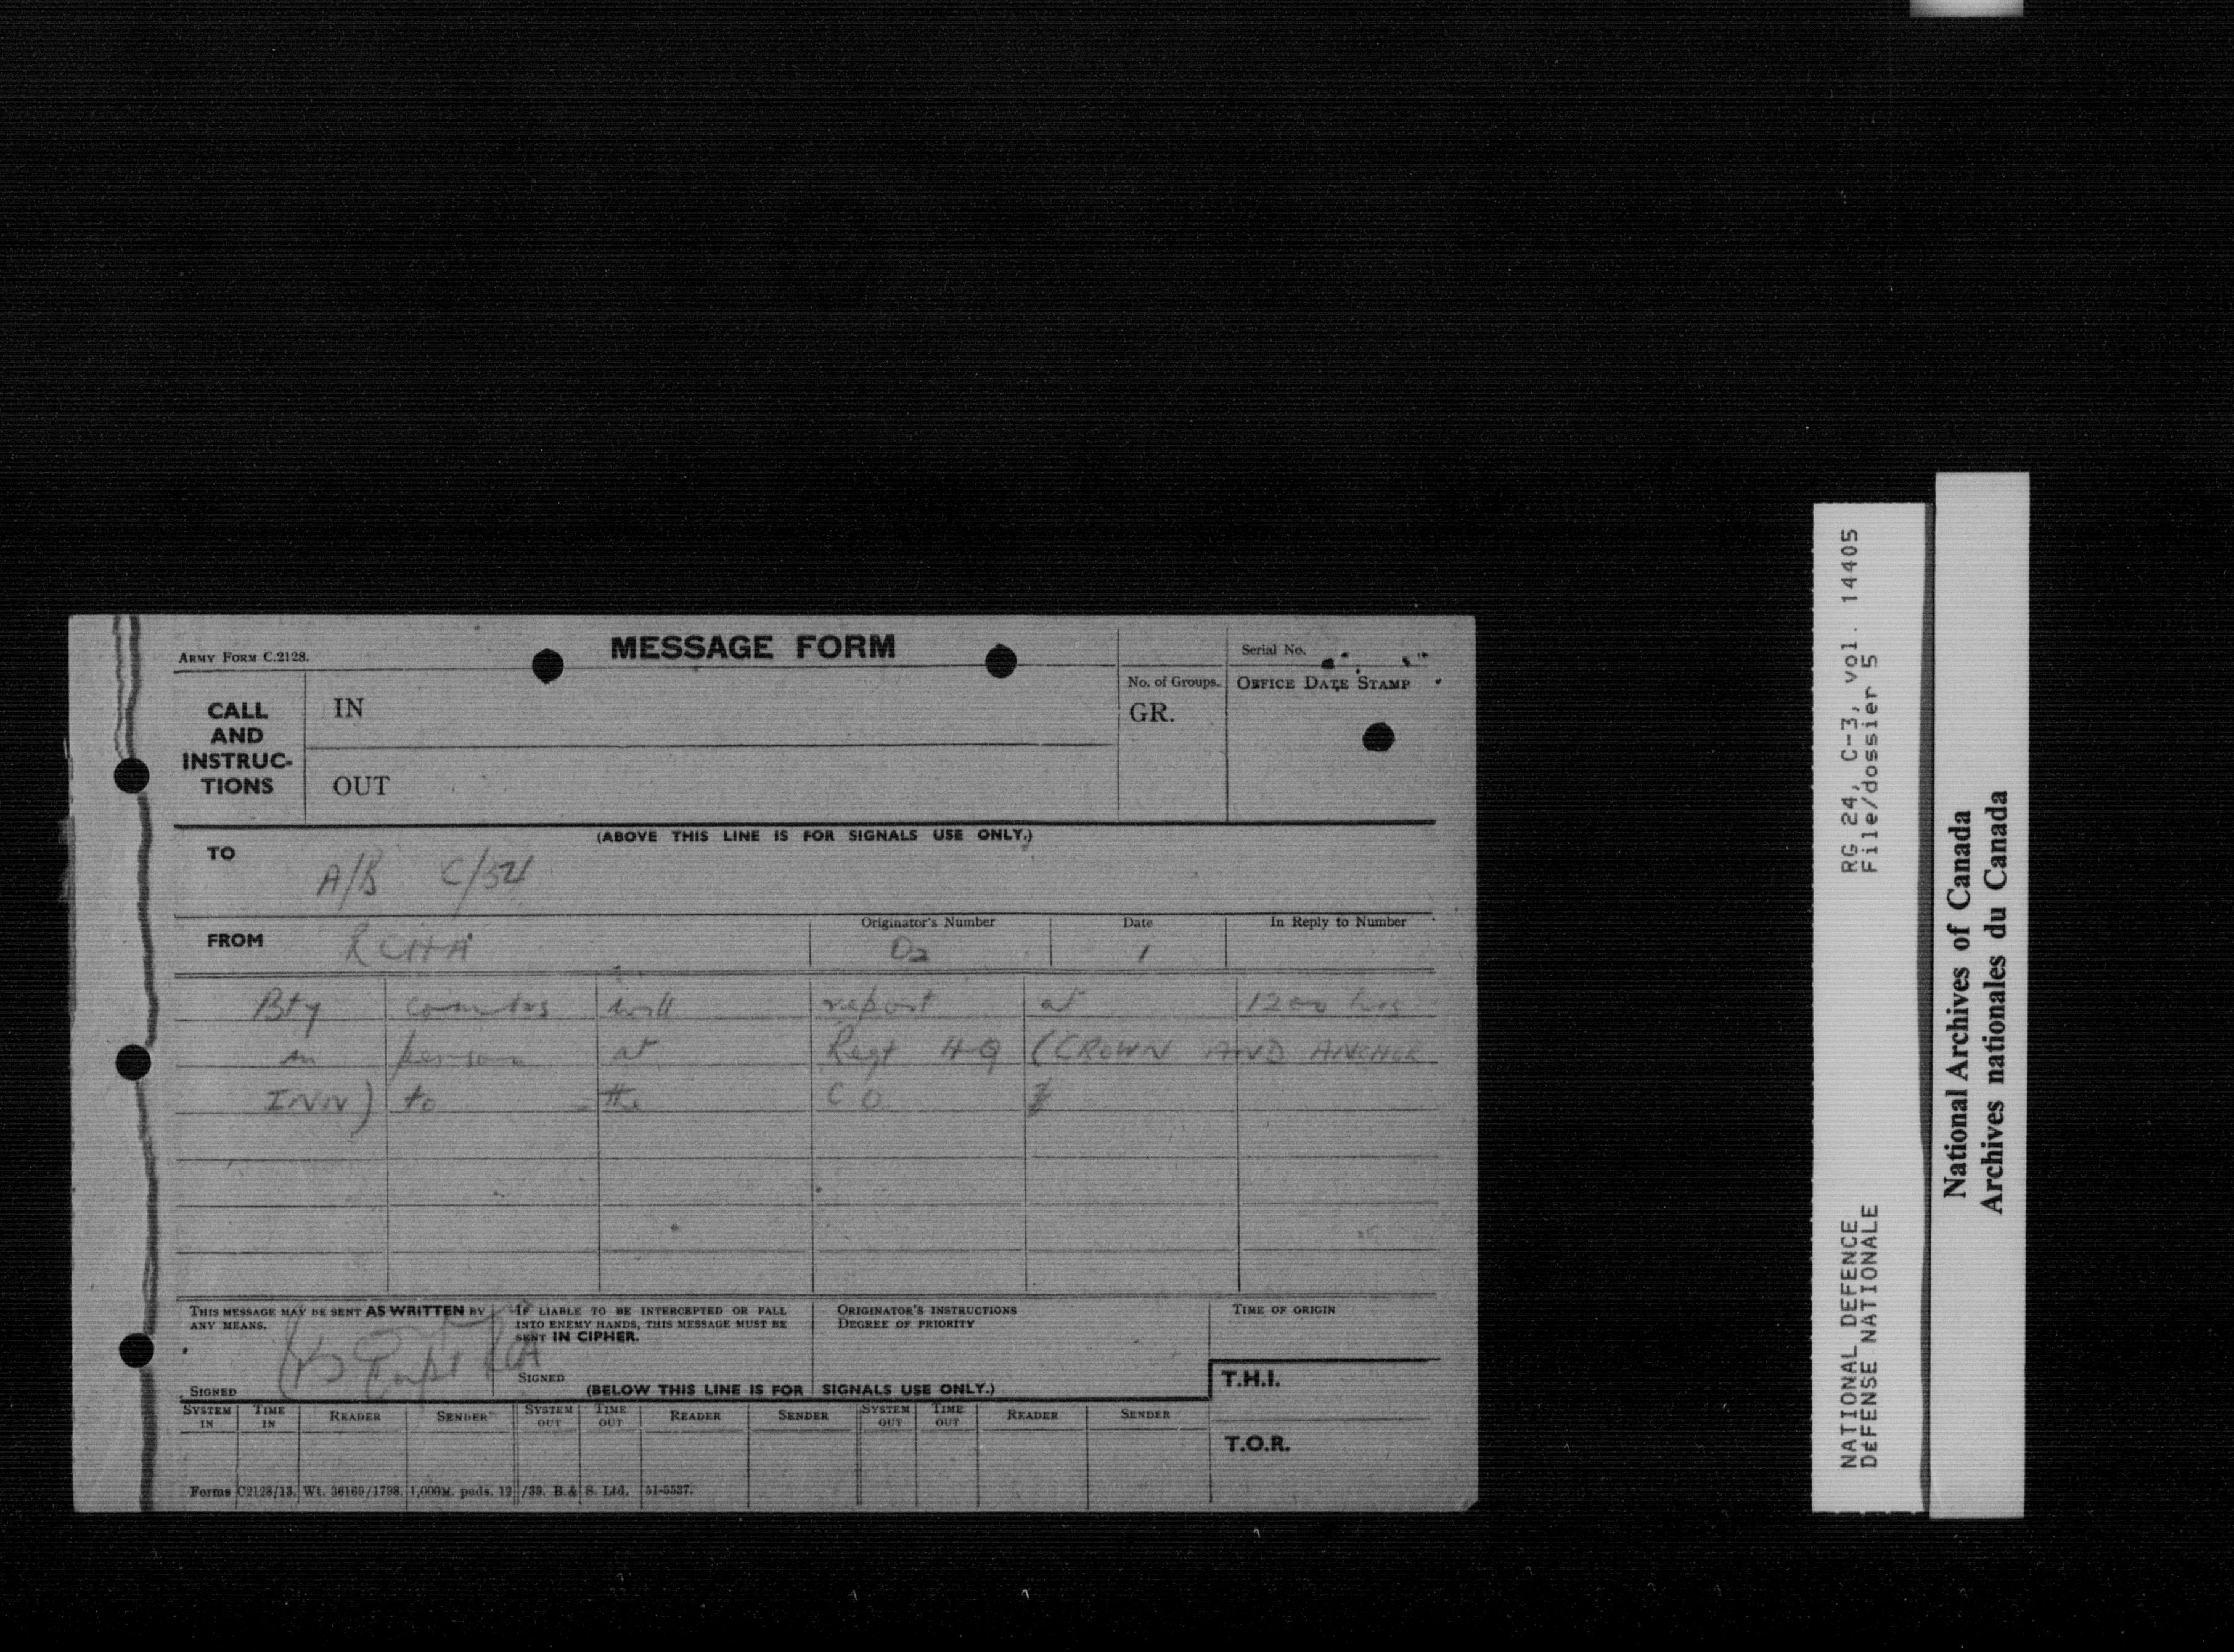 ARMY FORM C.2128.
MESSAGE FORM
Serial No.
CALL AND INSTRUC- TIONS
IN
No. of Groups.
GR.
OFFICE DATE STAMP
OUT
(ABOVE THIS LINE IS FOR SIGNALS USE ONLY.)
TO
A/B C/54
FROM
RCHA
Originator's Number
O2
Date
1
In Reply to Number
Bty comdrs will report at 1200 hrs
in person at Regt HQ (CROWN AND ANCHOR
INN) to the CO
THIS MESSAGE MAY BE SENT AS WRITTEN BY
ANY MEANS.
SIGNED
Capt RCA
IF LIABLE TO BE INTERCEPTED OR FALL
INTO ENEMY HANDS, THIS MESSAGE MUST BE
SENT IN CIPHER.
SIGNED
ORIGINATOR'S INSTRUCTIONS
DEGREE OF PRIORITY
TIME OF ORIGIN
(BELOW THIS LINE IS FOR SIGNALS USE ONLY.)
T.H.I.
SYSTEM IN TIME IN READER SENDER SYSTEM OUT TIME OUT READER SENDER SYSTEM OUT TIME OUT READER SENDER
T.O.R.
Forms C2128/13. Wt. 36169/1798. 1,000M. pads. 12/39. B.& S. Ltd. 51-5537.
NATIONAL DEFENCE RG 24, C-3, vol. 14405
DÉFENSE NATIONALE File/dossier 5
National Archives of Canada
Archives nationales du Canada